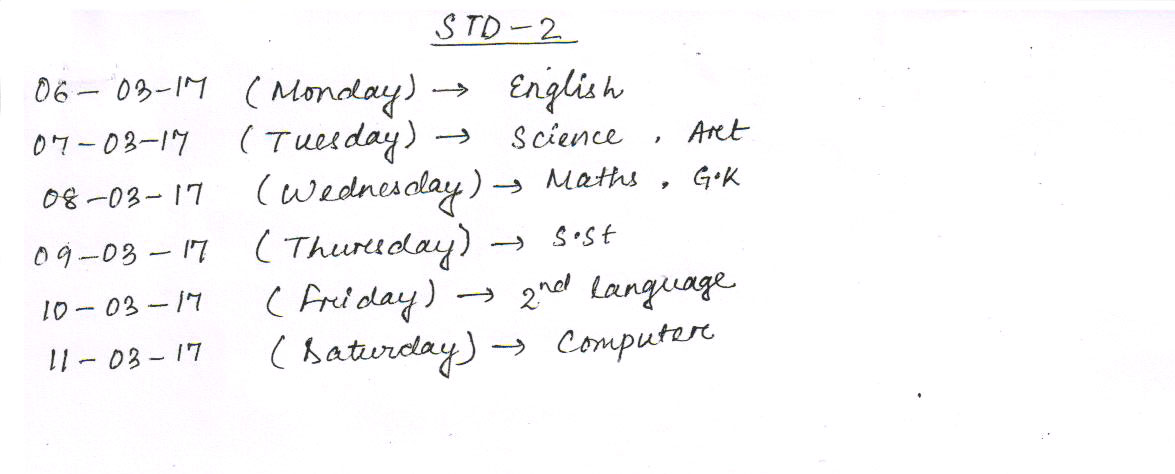 STD-2
06-03-17 (Monday) → English
07-03-17 (Tuesday) → Science, Art
08-03-17 (Wednesday) → Maths, G.K
09-03-17 (Thursday) → S.St
10-03-17 (Friday) → 2nd language
11-03-17 (Saturday) → Computer